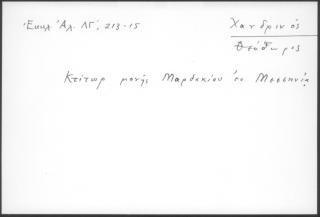 Ἐκκλ Ἀλ. ΛΓ', 213-15
Χανδρινός
Θεόδωρος
Κτίτωρ μονῆς Μαρδακίου ἐν Μεσσηνίᾳ